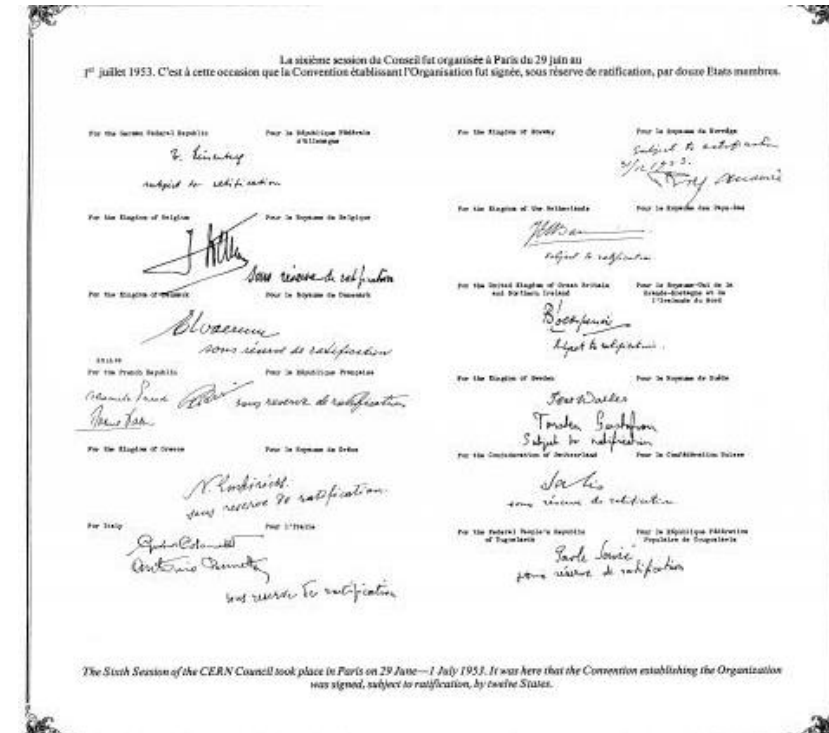 La sixième session du Conseil fut organisée à Paris du 29 juin au
1er juillet 1953. C'est à cette occasion que la Convention établissant l'Organisation fut signée, sous réserve de ratification, par douze Etats membres.
For the German Federal Republic
Pour la République Fédérale
d'Allemagne
subject to ratification
For the Kingdom of Belgium
Pour le Royaume de Belgique
sous réserve de ratification
For the Kingdom of Denmark
Pour le Royaume de Danemark
sous réserve de ratification
For the French Republic
Pour la République Française
sous reserve de ratification
For the Kingdom of Greece
Pour le Royaume de Grèce
sous reserve de ratification
For Italy
Pour l'Italie
Antonio
sous reserve de ratification
For the Kingdom of Norway
Pour le Royaume de Norvège
Subject to ratification
For the Kingdom of the Netherlands
Pour le Royaume des Pays-Bas
subject to ratification
For the United Kingdom of Great Britain
and Northern Ireland
Pour le Royaume-Uni de la
Grande-Bretagne et de
l'Irlande du Nord
subject to ratification
For the Kingdom of Sweden
Pour le Royaume de Suède
Torsten Gustafson
Subject to ratification
For the Confederation of Switzerland
Pour la Confédération Suisse
sous réserve de ratification
For the Federal People's Republic
of Yugoslavia
Pour la République Fédérative
Populaire de Yougoslavie
Pavle Savić
sous réserve de ratification
The Sixth Session of the CERN Council took place in Paris on 29 June—1 July 1953. It was here that the Convention establishing the Organization
was signed, subject to ratification, by twelve States.